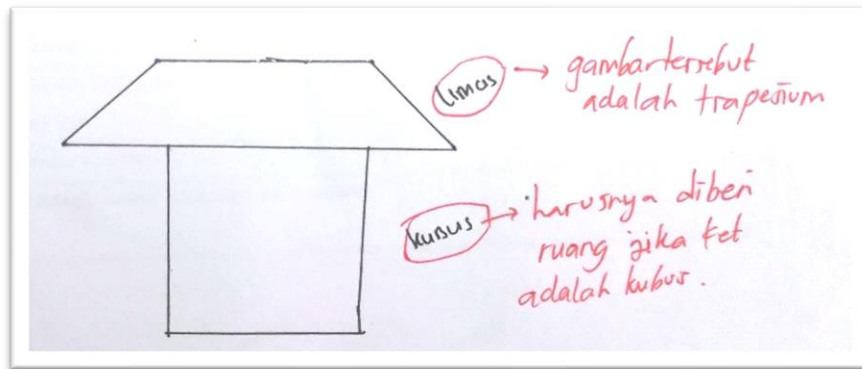 Limas → gambar tersebut
adalah trapesium
kubus → harusnya diberi
ruang jika ket
adalah kubus.